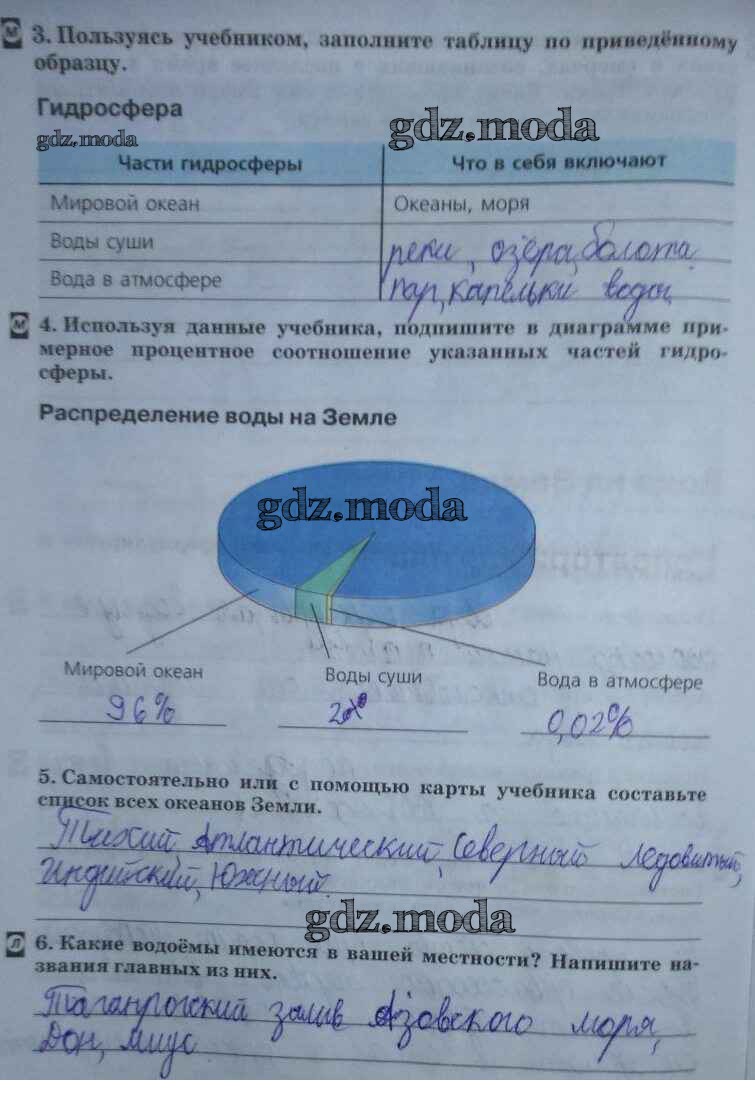 3. Пользуясь учебником, заполните таблицу по приведённому
образцу.
Гидросфера
gdz.moda
gdz.moda
Части гидросферы Что в себя включают
Мировой океан Океаны, моря
Воды суши реки, озёра, болота
Вода в атмосфере пар, капельки воды
4. Используя данные учебника, подпишите в диаграмме при-
мерное процентное соотношение указанных частей гидро-
сферы.
Распределение воды на Земле
gdz.moda
Мировой океан Воды суши Вода в атмосфере
96% 0,02%
5. Самостоятельно или с помощью карты учебника составьте
список всех океанов Земли.
Тихий Атлантический, Северный Ледовитый,
Индийский, Южный
gdz.moda
6. Какие водоёмы имеются в вашей местности? Напишите на-
звания главных из них.
Таганрогский залив Азовского моря,
Дон, Миус